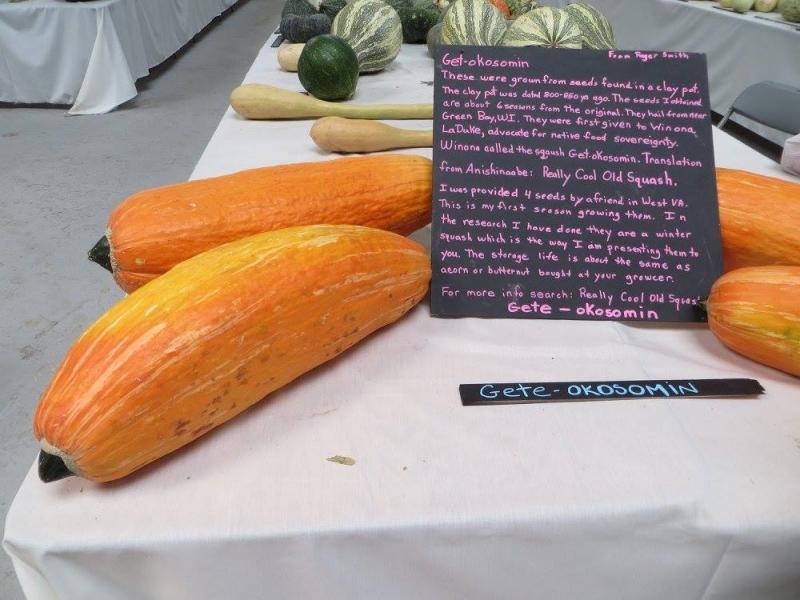 From Roger Smith
Get-okosomin
These were grown from seeds found in a clay pot.
The clay pot was dated 800-850 yrs ago. The seeds I obtained
are about 6 seasons from the original. They hail from near
Green Bay, WI. They were first given to Winona
LaDuke, advocate for native food sovereignty.
Winona called the squash Get-okosomin. Translation
from Anishinaabe: Really Cool Old Squash.
I was provided 4 seeds by a friend in West VA.
This is my first season growing them. In
the research I have done they are a winter
squash which is the way I am presenting them to
you. The storage life is about the same as
acorn or butternut bought at your growcer.
For more info search: Really Cool Old Squas
Gete-okosomin
Gete-OKOSOMIN